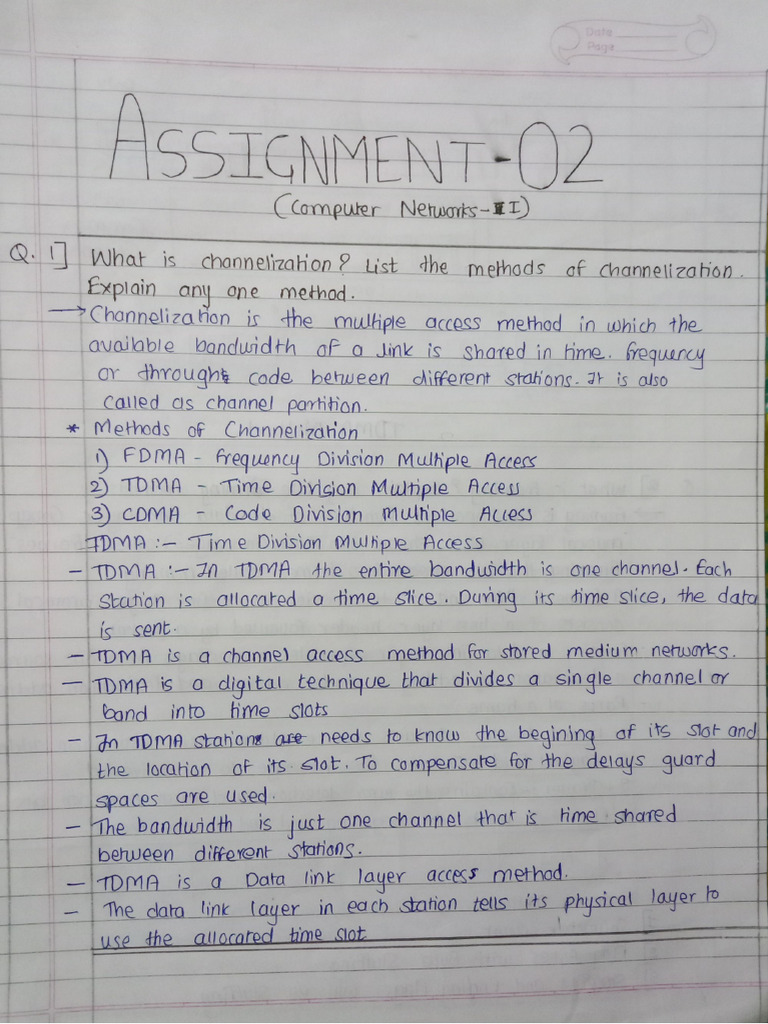 Date
Page
ASSIGNMENT-02
(Computer Networks-I)
Q. 1] What is channelization? List the methods of channelization.
Explain any one method.
→ Channelization is the multiple access method in which the
available bandwidth of a link is shared in time. frequency
or through code between different stations. It is also
called as channel partition.
* Methods of Channelization
1) FDMA - Frequency Division Multiple Access
2) TDMA - Time Division Multiple Access
3) CDMA - Code Division Multiple Access
TDMA :- Time Division Multiple Access
- TDMA :- In TDMA the entire bandwidth is one channel. Each
station is allocated a time slice. During its time slice, the data
is sent.
- TDMA is a channel access method for stored medium networks.
- TDMA is a digital technique that divides a single channel or
band into time slots
- In TDMA station are needs to know the begining of its slot and
the location of its slot. To compensate for the delays guard
spaces are used.
- The bandwidth is just one channel that is time shared
between different stations.
- TDMA is a Data link layer access method.
- The data link layer in each station tells its physical layer to
use the allocated time slot